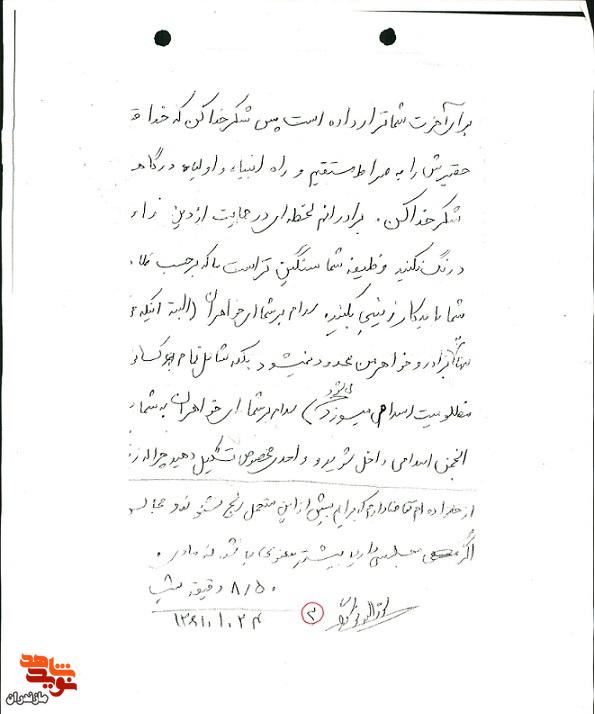 برای آخرت شما قرار داده است پس شکر خدا کن که خدا
حقیرش را به صراط مستقیم و راه انبیاء و اولیاء درگاه
شکر خدا کن. برادرانم لحظه‌ای در حمایت از دین
درنگ نکنید وظیفه شما سنگین تر است که بر حسب
شما باید کار زینبی بکنید. سلام بر شما ای خواهران (البته اینکه
برادر و خواهر من محدود نمیشود بلکه شامل تمام کسا
مظلومیت اسلام میسوزد می‌شود) سلام بر شما ای خواهران به شما
انجمن اسلامی داخل شوید و واحدی مخصوص تشکیل دهید چرا که
از خانواده ام تقاضا دارم که برایم بیش از این متحمل رنج نشوند و
اگر مجلسی دارید بیشتر معنوی باشد نه مادی.
۸/۵۰ دقیقه شب
۳
۱۳۶۱.۱.۲۴
نوید شاهد
مازندران